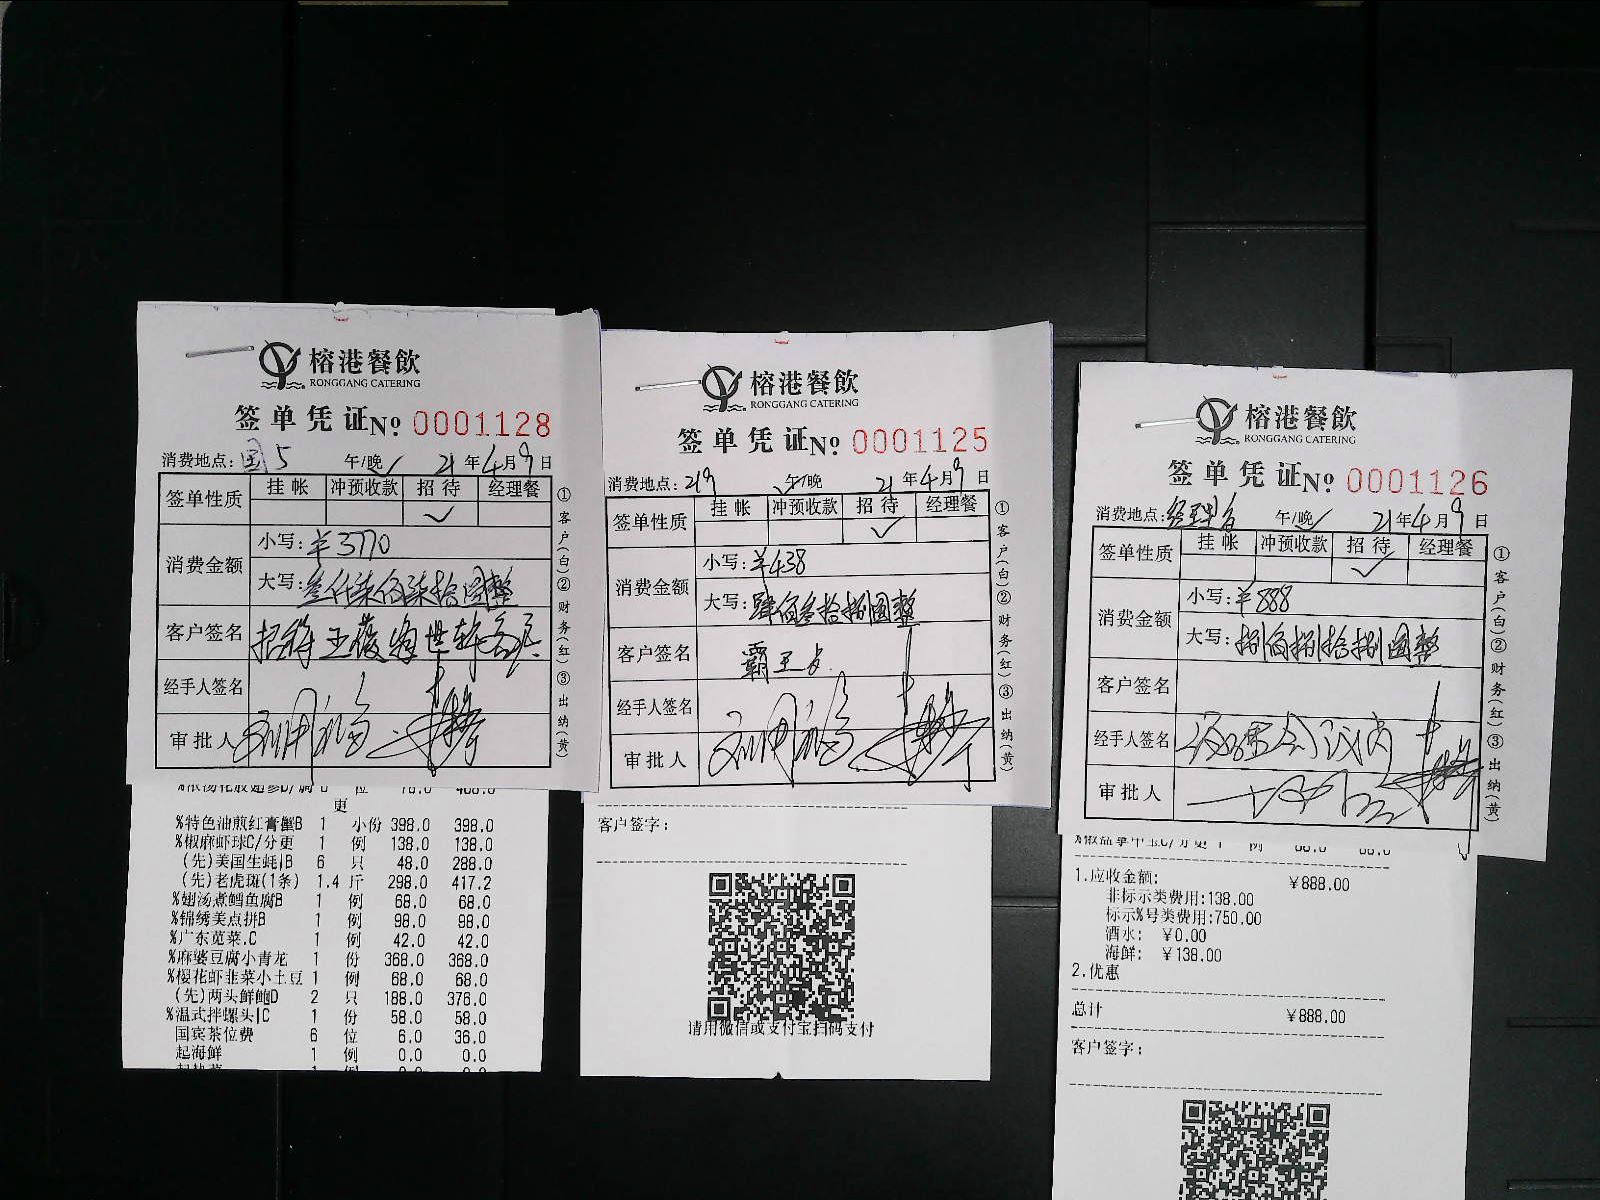 榕港餐飲
RONGGANG CATERING
签单凭证 No. 0001128
消费地点：国5 午/晚✓ 21年4月9日
签单性质 挂帐 冲预收款 招待 经理餐
✓
消费金额 小写：¥3770
大写：叁仟柒佰柒拾圆整
客户签名
经手人签名
审批人
①客户(白)②财务(红)③出纳(黄)
更
%特色油煎红膏蟹B 1 小份 398.0 398.0
%椒麻虾球C/分更 1 例 138.0 138.0
(先)美国生蚝IB 6 只 48.0 288.0
(先)老虎斑(1条) 1.4 斤 298.0 417.2
%翅汤煮鳕鱼腐B 1 例 68.0 68.0
%锦绣美点拼B 1 例 98.0 98.0
%广东苋菜.C 1 例 42.0 42.0
%麻婆豆腐小青龙 1 份 368.0 368.0
%樱花虾韭菜小土豆 1 例 68.0 68.0
(先)两头鲜鲍D 2 只 188.0 376.0
%温式拌螺头IC 1 份 58.0 58.0
国宾茶位费 6 位 6.0 36.0
起海鲜 1 例 0.0 0.0
榕港餐飲
RONGGANG CATERING
签单凭证 No. 0001125
消费地点：219 午✓/晚 21年4月9日
签单性质 挂帐 冲预收款 招待 经理餐
✓
消费金额 小写：¥438
大写：肆佰叁拾捌圆整
客户签名 霸王卡
经手人签名
审批人
①客户(白)②财务(红)③出纳(黄)
客户签字：
请用微信或支付宝扫码支付
榕港餐飲
RONGGANG CATERING
签单凭证 No. 0001126
消费地点： 午/晚✓ 21年4月9日
签单性质 挂帐 冲预收款 招待 经理餐
✓
消费金额 小写：¥888
大写：捌佰捌拾捌圆整
客户签名
经手人签名
审批人
①客户(白)②财务(红)③出纳(黄)
1.应收金额： ¥888.00
非标示类费用:138.00
标示%号类费用:750.00
酒水： ¥0.00
海鲜： ¥138.00
2.优惠
总计 ¥888.00
客户签字：